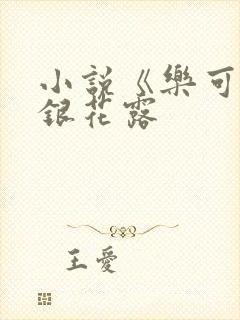 小說《樂可
銀花露
王愛